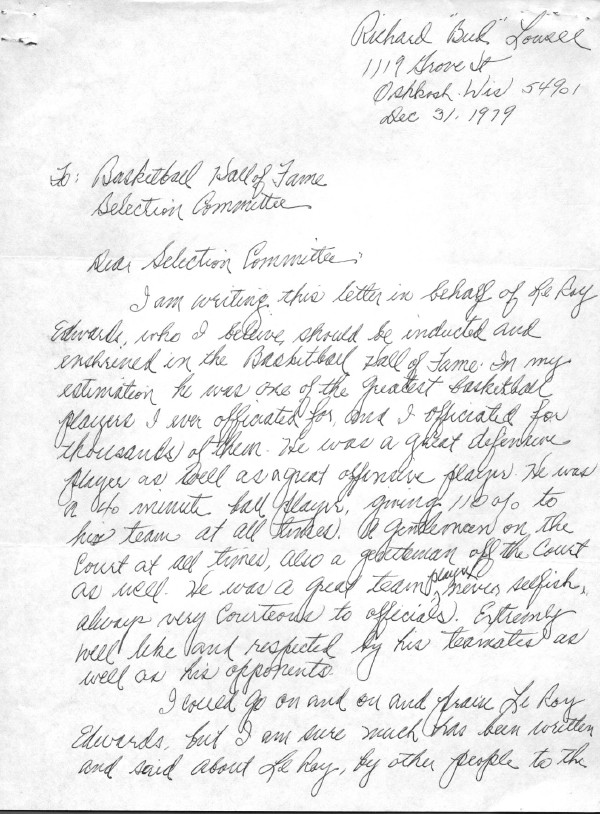 Richard "Bud" Lowell
1119 Grove St
Oshkosh Wis 54901
Dec 31. 1979
To: Basketball Hall of Fame
Selection Committee
Dear Selection Committee:
I am writing this letter in behalf of Le Roy
Edwards, who I beleive, should be inducted and
enshrined in the Basketball Hall of Fame. In my
estimation he was one of the greatest basketball
players I ever officiated for, and I officiated for
thousands of them. He was a great defensive
player as well as a great offensive player. He was
a 40 minute ball player, giving 110% to
his team at all times. A gentleman on the
Court at all times, also a gentleman off the Court
as well. He was a great team player, never selfish,
always very Courteous to officials. Extremly
well like and respected by his teamates as
well as his opponents.
I could go on and on and praise Le Roy
Edwards, but I am sure much has been written
and said about Le Roy, by other people to the